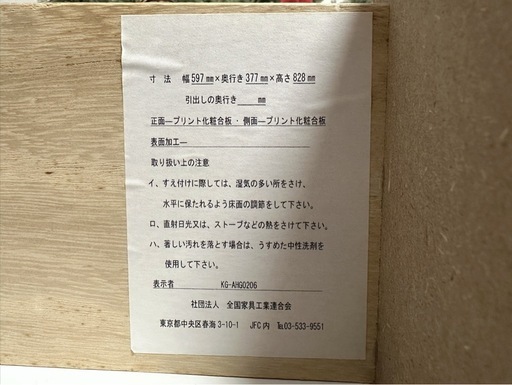 寸　法　幅597㎜×奥行き377㎜×高さ828㎜
引出しの奥行き　　　㎜
正面―プリント化粧合板・側面―プリント化粧合板
表面加工―
取り扱い上の注意
イ、すえ付けに際しては、湿気の多い所をさけ、
水平に保たれるよう床面の調節をして下さい。
ロ、直射日光又は、ストーブなどの熱をさけて下さい。
ハ、著しい汚れを落とす場合は、うすめた中性洗剤を
使用して下さい。
表示者　KG-AHG0206
社団法人　全国家具工業連合会
東京都中央区春海3-10-1　JFC内　℡03-533-9551